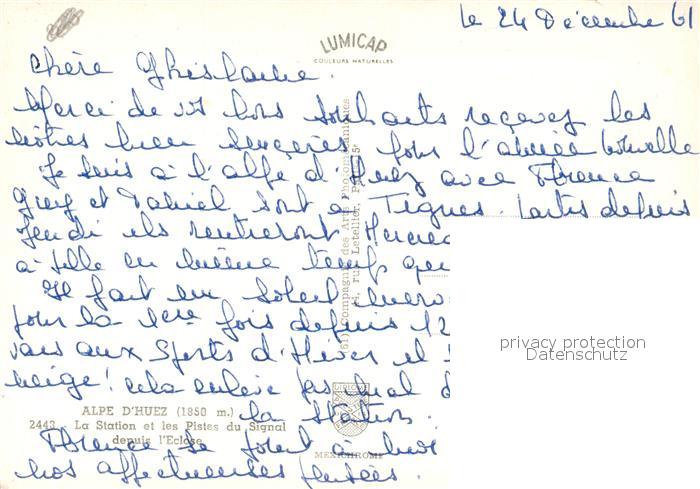 le 24 Décembre 61
LUMICAP
COULEURS NATURELLES
Chère Ghislaine.
Merci de vos bons souhaits recevez les
nôtres bien sincères pour l'année nouvelle
Je suis à l'alpe d'Huez avec Florence
Guy et Daniel sont à Tignes. Partis depuis
Jeudi ils rentreront Mercre
à Lille en même temps que
Il fait un soleil merv
pour la 1ere fois depuis 12
vais aux Sports d'Hiver et
neige! cela enlève pas mal d
la station.
Florence se joint à moi
nos affectueuses pensées.
ALPE D'HUEZ (1850 m.)
2443. La Station et les Pistes du Signal
depuis l'Eclose
MEXICHROME
Compagnie des Arts Photomécaniques
44, rue Letellier, Paris-15e
privacy protection
Datenschutz